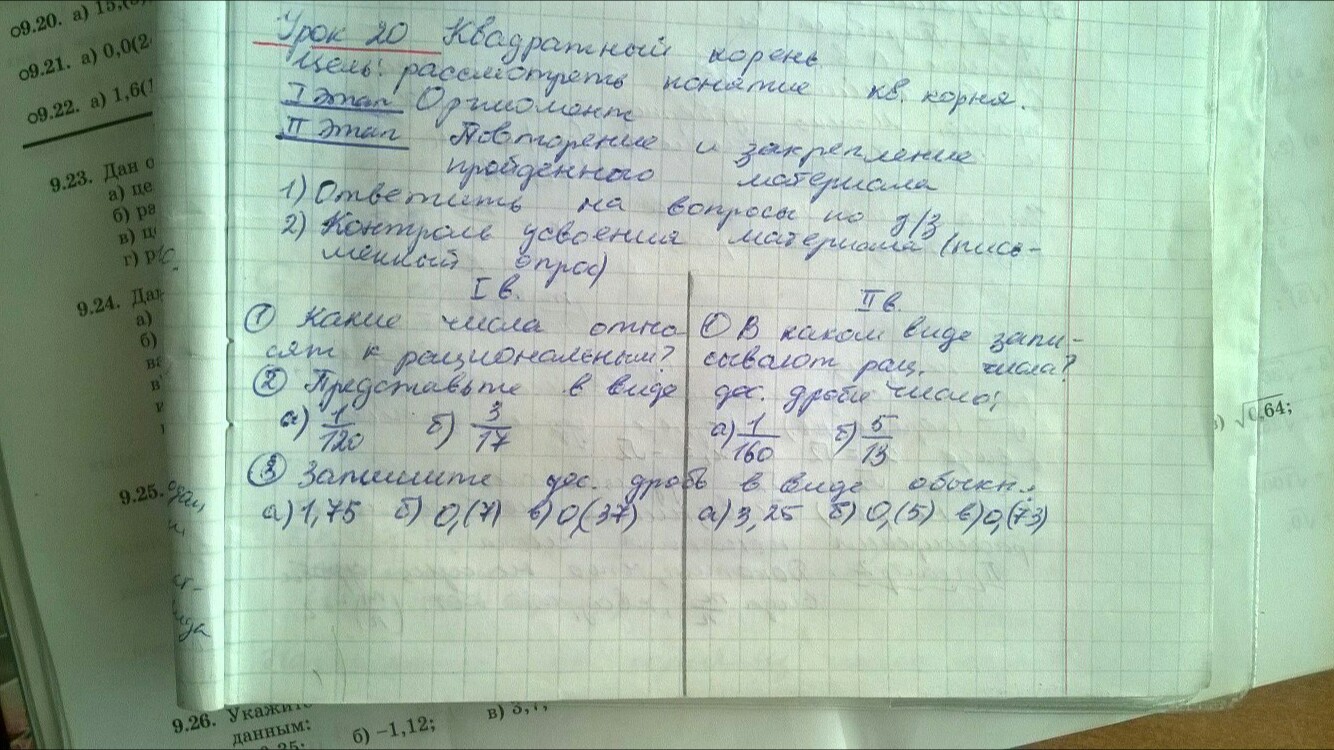 о9.20. а) 15,(3
о9.21. а) 0,0(2
о9.22. а) 1,6(1
9.23. Дан о
а) це
б) ра
в) ц
г) р
9.24. Дан
а)
б)
в
9.25.
Урок 20 Квадратный корень
Цель: рассмотреть понятие кв. корня.
I этап Оргмомент
II этап Повторение и закрепление
пройденного материала
1) Ответить на вопросы по д/з
2) Контроль усвоения материала (пись-
менный опрос)
I в.
① Какие числа отно
сят к рациональным?
II в.
① В каком виде запи-
сывают рац. числа?
② Представьте в виде дес. дроби число:
а) 1/120 б) 3/17
а) 1/160 б) 5/13
③ Запишите дес. дробь в виде обыкн.:
а) 1,75 б) 0,(7) в) 0,(37)
а) 3,25 б) 0,(5) в) 0,(73)
√0,64;
9.26. Укажите
данным:
б) –1,12;